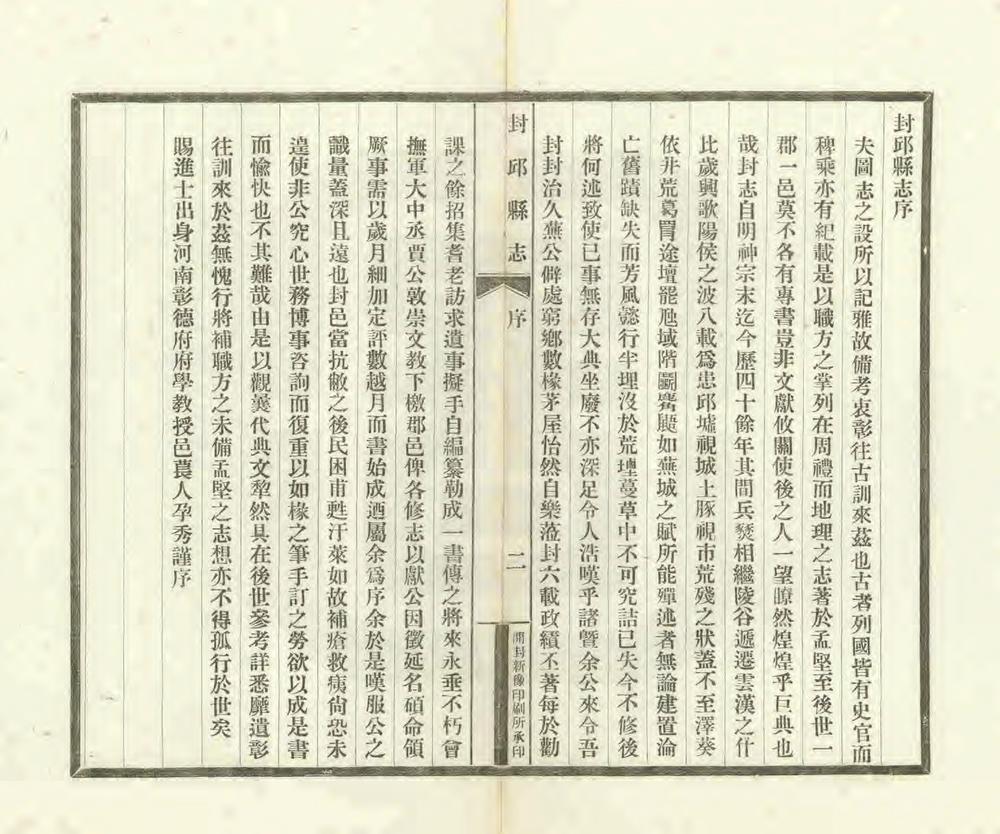 封邱縣志序
夫圖志之設所以記雅故備考衷彰往古訓來茲也古者列國皆有史官而
稗乘亦有紀載是以職方之掌列在周禮而地理之志著於孟堅至後世一
郡一邑莫不各有專書豈非文獻攸關使後之人一望瞭然煌煌乎巨典也
哉封志自明神宗末迄今歷四十餘年其間兵燹相繼陵谷遞遷雲漢之什
比歲興歌陽侯之波八載爲患邱墟視城土豚視市荒殘之狀蓋不至澤葵
依井荒葛罥途壇羅虺域階鬭麏鼯如蕪城之賦所能殫述者無論建置淪
亡舊蹟缺失而芳風懿行半理沒於荒堙蔓草中不可究詰已失今不修後
將何述致使已事無存大典坐廢不亦深足令人浩嘆乎諸暨余公來令吾
封封治久蕪公僻處窮鄉數椽茅屋怡然自樂蒞封六載政績丕著每於勸
封邱縣志
序
二
開封新豫印刷所承印
課之餘招集耆老訪求遺事擬手自編纂勒成一書傳之將來永垂不朽會
撫軍大中丞賈公敦崇文教下檄郡邑俾各修志以獻公因徵延名碩命領
厥事需以歲月細加定評數越月而書始成迺屬余爲序余於是嘆服公之
識量蓋深且遠也封邑當抗敝之後民困甫甦汙萊如故補瘡救痍尙恐未
遑使非公究心世務博事咨詢而復重以如椽之筆手訂之勞欲以成是書
而愉快也不其難哉由是以觀異代典文犂然具在後世參考詳悉靡遺彰
往訓來於茲無愧行將補職方之未備孟堅之志想亦不得孤行於世矣
賜進士出身河南彰德府府學教授邑萇人孕秀謹序